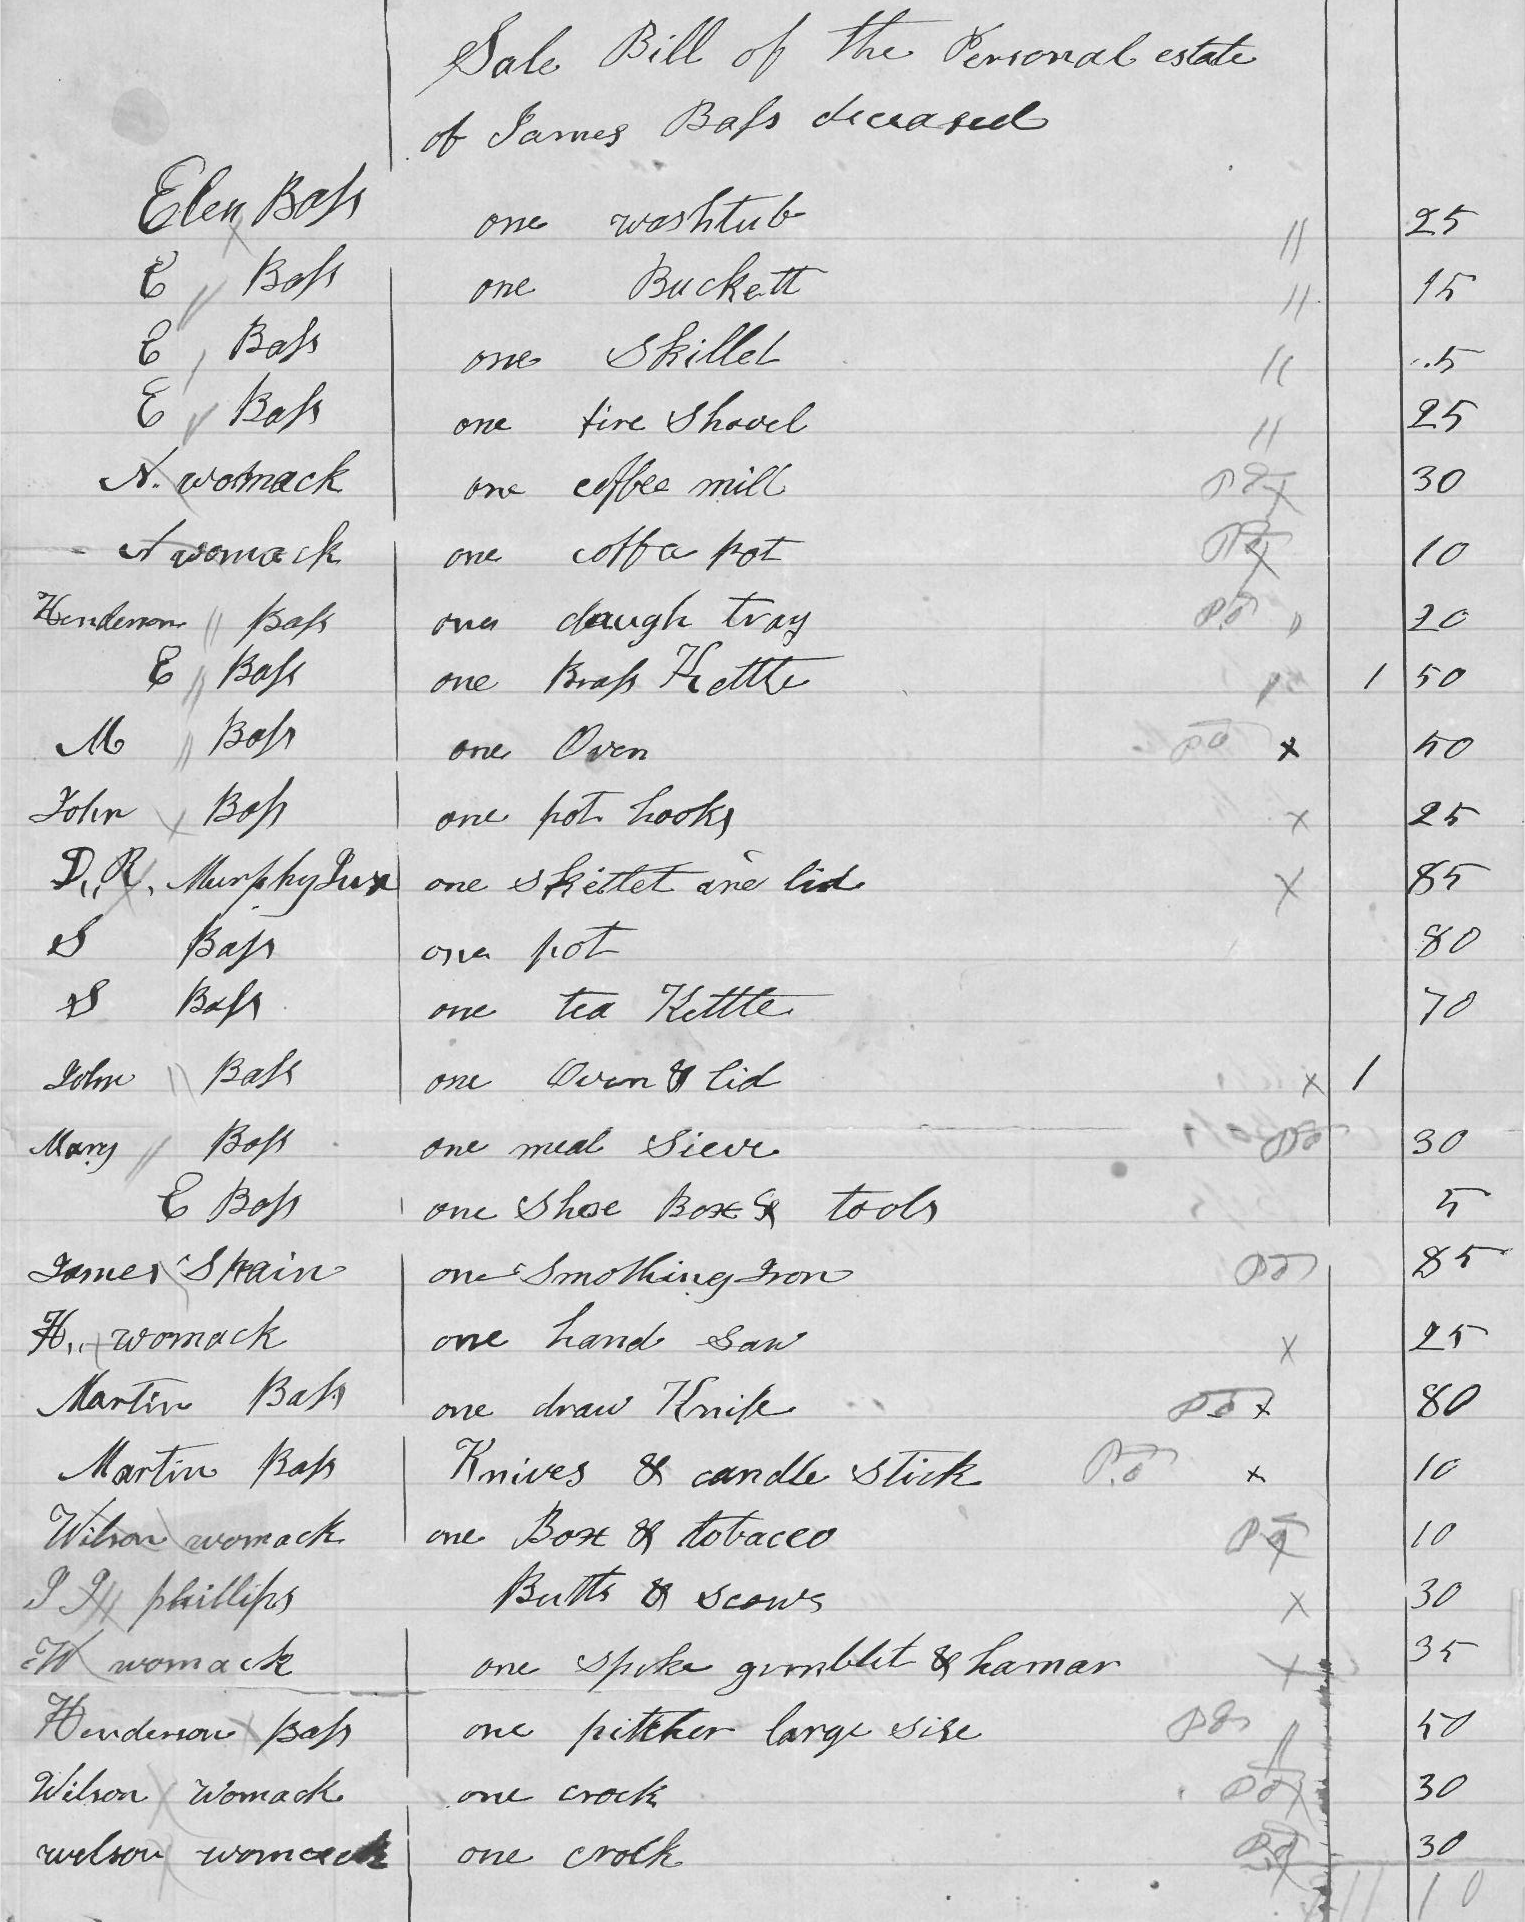 Sale Bill of the Personal estate
of James Bass deceased
Elen Bass one washtub " 25
E " Bass one Buckett " 15
E " Bass one Skillet " 5
E " Bass one fire Shovel " 25
N. womack one coffee mill Pd x 30
N womack one coffa pot Pd x 10
Henderson " Bass one daugh tray Pd " 20
E " Bass one Brass Kettle " 1 50
M " Bass one Oven Pd x 50
John x Bass one pot hooks x 25
D. R. Murphy one skillet ane lid x 85
S Bass one pot 80
S Bass one tea Kettle 70
John " Bass one Oven & lid x 1
Mary " Bass one meal Sieve Pd 30
E Bass one Shoe Box & tools 5
James Spain one Smothing Iron Pd 85
H. womack one hand Saw x 25
Martin Bass one draw Knife Pd x 80
Martin Bass Knives & candle Stick Pd x 10
Wilson womack one Box & tobacco Pd x 10
phillips Butts & Scrws x 30
W womack one spike gimblet & hamar x 35
Henderson x Bass one pitcher large sise Pd " 50
Wilson Womack one crock Pd x 30
wilson womack one crock Pd x 30
11 10